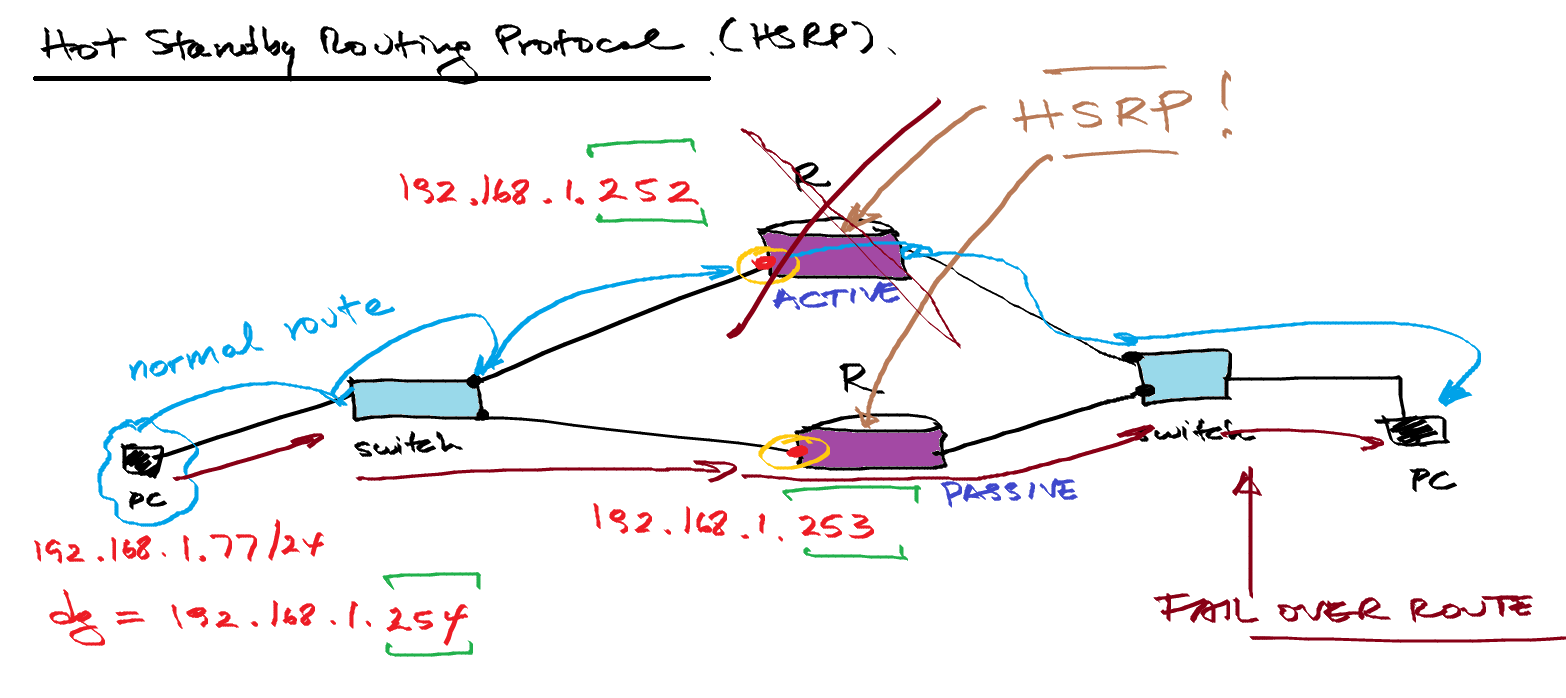 Hot Standby Routing Protocol (HSRP).
HSRP!
192.168.1.252
R
ACTIVE
normal route
R
switch
switch
PC
PC
PASSIVE
192.168.1.253
192.168.1.77/24
dg = 192.168.1.254
FAIL OVER ROUTE